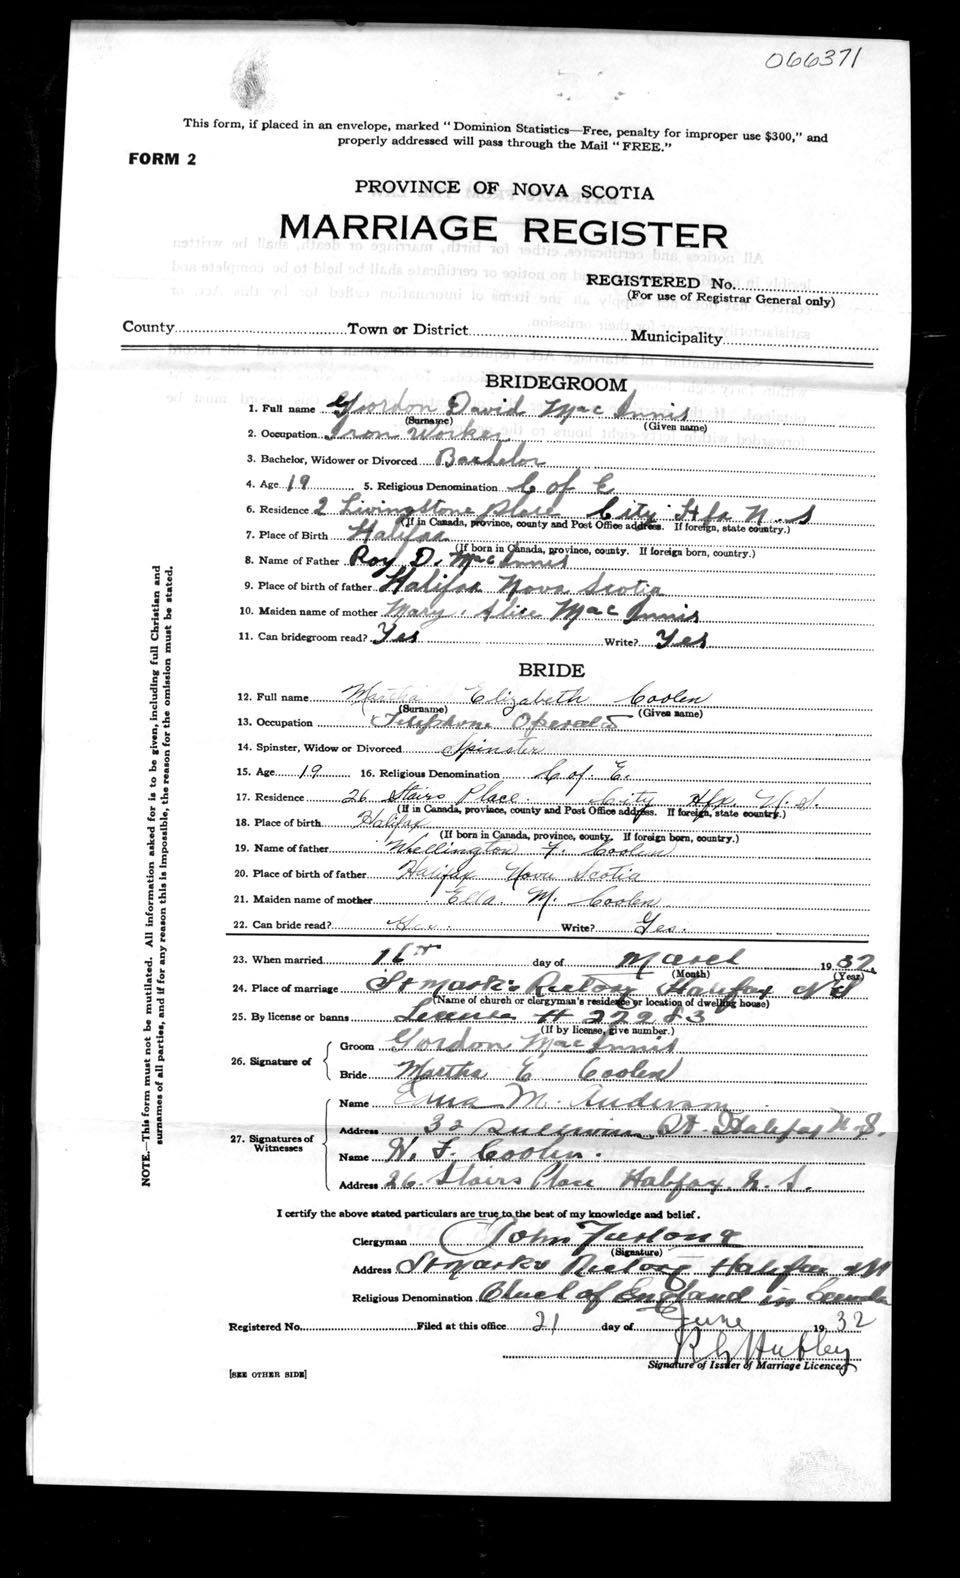 066371
This form, if placed in an envelope, marked "Dominion Statistics—Free, penalty for improper use $300," and
properly addressed will pass through the Mail "FREE."
FORM 2
PROVINCE OF NOVA SCOTIA
MARRIAGE REGISTER
REGISTERED No.
(For use of Registrar General only)
County Town or District Municipality
BRIDEGROOM
1. Full name Gordon David MacInnis
(Surname) (Given name)
2. Occupation Iron Worker
3. Bachelor, Widower or Divorced Bachelor
4. Age 19 5. Religious Denomination C of E
6. Residence 2 Livingstone place City Hfx N.S
(If in Canada, province, county and Post Office address. If foreign, state country.)
7. Place of Birth Halifax
(If born in Canada, province, county. If foreign born, country.)
8. Name of Father Roy D. MacInnis
9. Place of birth of father Halifax Nova Scotia
10. Maiden name of mother Mary Alice MacInnis
11. Can bridegroom read? Yes Write? Yes
BRIDE
12. Full name Martha Elizabeth Coolen
(Surname) (Given name)
13. Occupation Telephone Operator
14. Spinster, Widow or Divorced Spinster
15. Age 19 16. Religious Denomination C of. E.
17. Residence 26 Stairs Place. City Hfx. N.S.
(If in Canada, province, county and Post Office address. If foreign, state country.)
18. Place of birth Halifax
(If born in Canada, province, county. If foreign born, country.)
19. Name of father Wellington F. Coolen
20. Place of birth of father Halifax Nova Scotia
21. Maiden name of mother Ella. M. Coolen
22. Can bride read? Yes. Write? Yes.
23. When married 16th day of March 1932
(Month) (Year)
24. Place of marriage St Mark's Rectory Halifax NS
(Name of church or clergyman's residence or location of dwelling house)
25. By license or banns License # 22983
(If by license, give number.)
26. Signature of
Groom Gordon MacInnis
Bride Martha E Coolen
27. Signatures of Witnesses
Name Edna M. Anderson
Address 32 St. Halifax N.S.
Name W. F. Coolen.
Address 26 Stairs Place Halifax N.S.
I certify the above stated particulars are true to the best of my knowledge and belief.
Clergyman John Furlong
(Signature)
Address St Mark's Rectory Halifax
Religious Denomination Church of England in Canada
Registered No. Filed at this office 21 day of June 1932
R G Hubley
Signature of Issuer of Marriage Licences
[SEE OTHER SIDE]
NOTE.—This form must not be mutilated. All information asked for is to be given, including full Christian and
surnames of all parties, and if for any reason this is impossible, the reason for the omission must be stated.